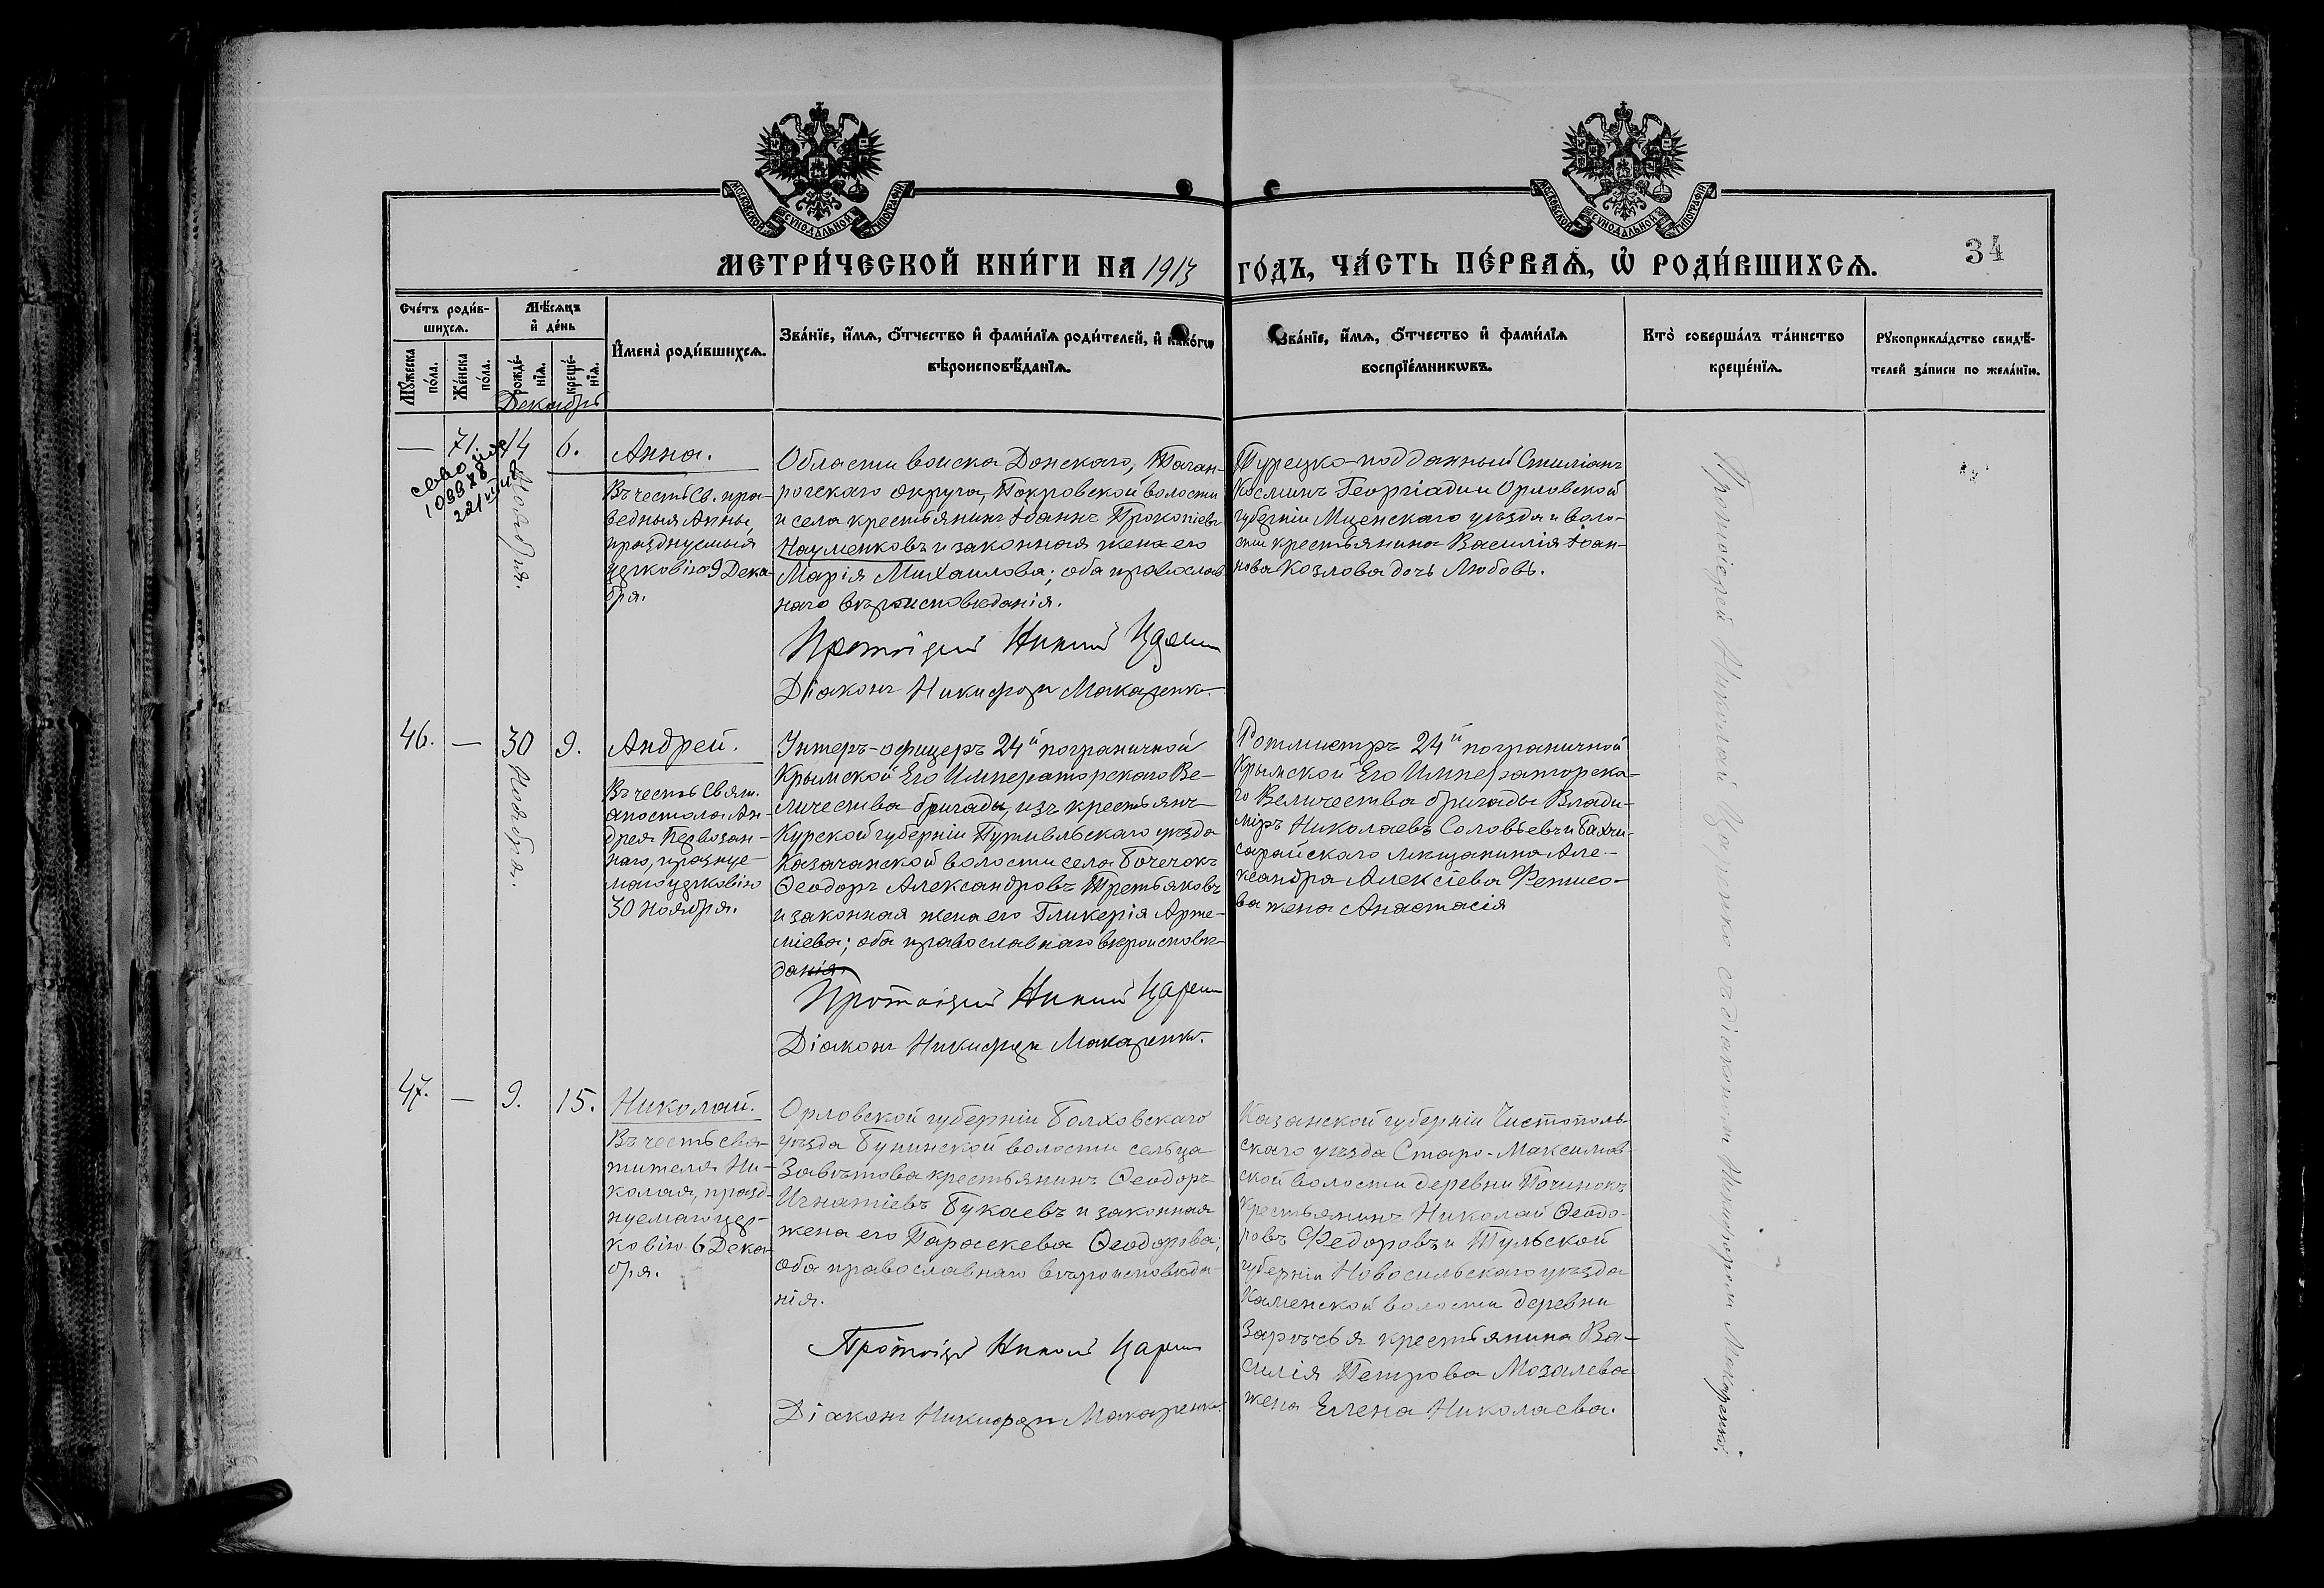 МОСКОВСКОЙ СѴНОДАЛЬНОЙ ТИПОГРАФІИ
МОСКОВСКОЙ СѴНОДАЛЬНОЙ ТИПОГРАФІИ
МЕТРИ́ЧЕСКОЙ КНИ́ГИ НА 1913 ГО́ДЪ, ЧА́СТЬ ПЕ́РВАѦ, Ѡ҆ РОДИ́ВШИХСѦ.
34
Сче́тъ роди́в-
шихсѧ.
Мѣ́сѧцъ
и҆ де́нь
И҆мена̀ роди́вшихсѧ.
Зва́нїе, и҆́мѧ, ѻ҆́тчество и҆ фами́лїѧ роди́телей, и҆ како́гѡ
вѣроисповѣ́данїѧ.
Зва́нїе, и҆́мѧ, ѻ҆́тчество и҆ фами́лїѧ
воспрїе́мникѡвъ.
Кто̀ соверша́лъ та́инство
креще́нїѧ.
Рꙋкоприкла́дство свидѣ́-
телей за́писи по жела́нїю.
Мꙋ́жеска
по́ла.
Же́нска
по́ла.
рожде́-
нїѧ.
креще́-
нїѧ.
Декабрь
— 71. 14 6. Анна.
Ноября.
Въ честь Св. пра-
ведныя Анны,
празднуемыя
церковію 9 Дека-
бря.
Области войска Донскаго, Таган-
рогскаго округа, Покровской волости
и села крестьянинъ Іоаннъ Прокопіевъ
Науменковъ и законная жена его
Марія Михаилова; оба православ-
наго вѣроисповѣданія.
Протоіерей
Діаконъ Никифоръ Макаренко.
Турецко-подданный Стиліанъ
Космичъ Георгіади и Орловской
губерніи Мценскаго уѣзда и воло-
сти крестьянина Василія Іоан-
нова Козлова дочь Любовь.
46. — 30 9. Андрей.
Ноября.
Въ честь Свят.
апостола Ан-
дрея Первозван-
наго, праздnуе-
маго церковію
30 Ноября.
Унтеръ-офицеръ 24й пограничной
Крымской Его Императорскаго Ве-
личества бригады, изъ крестьянъ
Курской губерніи Путивльскаго уѣзда
Казачанской волости села Бочечокъ
Ѳеодоръ Александровъ Третьяковъ
и законная жена его Гликерія Арте-
міева; оба православнаго вѣроисповѣ-
данія.
Протоіерей
Діаконъ Никифоръ Макаренко.
Ротмистръ 24й пограничной
Крымской Его Императорска-
го Величества бригады Влади-
міръ Николаевъ Соловьевъ и Бахчи-
сарайскаго мѣщанина Але-
ксандра Алексіева Фетисо-
ва жена Анастасія
47. — 9. 15. Николай.
Въ честь свя-
тителя Ни-
колая, празд-
нуемаго цер-
ковію 6 Дека-
бря.
Орловской губерніи Болховскаго
уѣзда Бунинской волости сельца
Завѣтова крестьянинъ Ѳеодоръ
Игнатіевъ Букаевъ и законная
жена его Параскева Ѳеодорова;
оба православнаго вѣроисповѣда-
нія.
Протоіерей
Діаконъ Никифоръ Макаренко.
Казанской губерніи Чистополь-
скаго уѣзда Старо-Максимов-
ской волости деревни Починокъ
крестьянинъ Николай Ѳеодо-
ровъ Федоровъ и Тульской
губерніи Новосильскаго уѣзда
Каменской волости деревни
Зарѣчья крестьянина Ва-
силія Петрова Мозалева
жена Елена Николаева.
Протоіерей съ діакономъ Никифоромъ Макаренко.